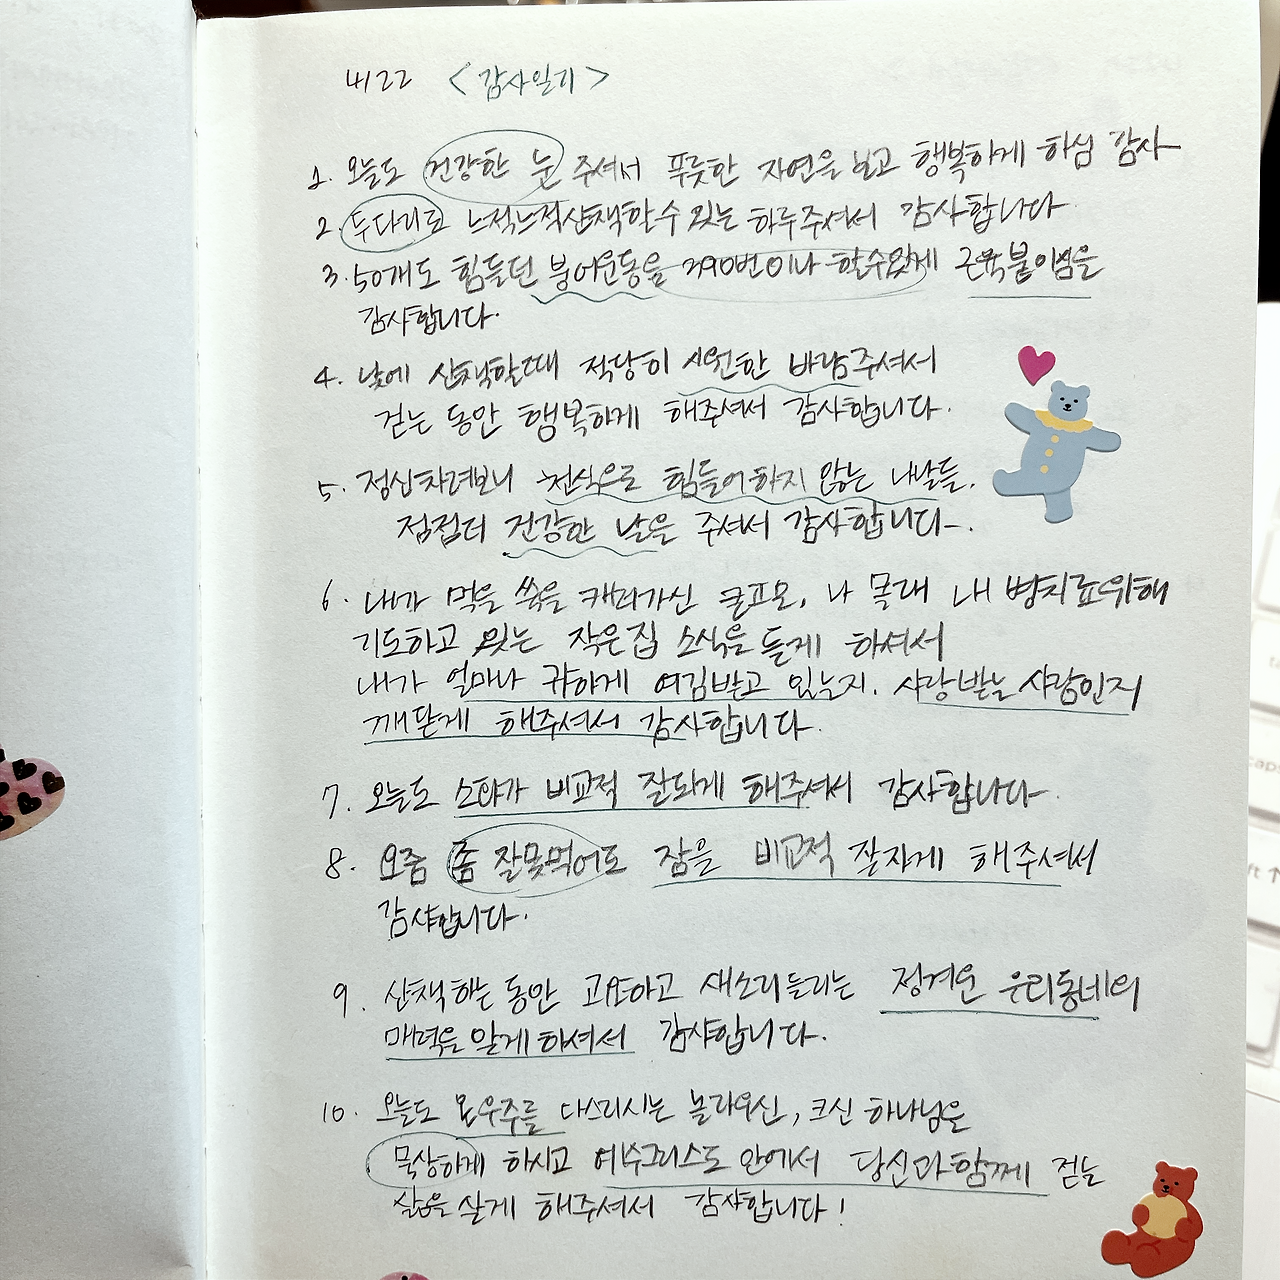 4/22 <감사일기>
1. 오늘도 건강한 눈 주셔서 푸릇한 자연을 보고 행복하게 하심 감사
2. 두다리로 느적느적산책할수 있는 하루주셔서 감사합니다
3. 50개도 힘들던 붕어운동을 390번이나 할수있게 근육붙이심을
감사합니다.
4. 낮에 산책할때 적당히 시원한 바람주셔서
걷는 동안 행복하게 해주셔서 감사합니다.
5. 정신차려보니 천식으로 힘들어하지 않는 나날들.
점점더 건강한 날을 주셔서 감사합니다.
6. 내가 먹을 쑥을 캐다가신 큰고모, 나 몰래 내 병치료위해
기도하고 있는 작은집 소식을 듣게 하셔서
내가 얼마나 귀하게 여김받고 있는지. 사랑받는 사람인지
깨닫게 해주셔서 감사합니다.
7. 오늘도 소화가 비교적 잘되게 해주셔서 감사합니다.
8. 요즘 좀 잘못먹어도 잠을 비교적 잘자게 해주셔서
감사합니다.
9. 산책하는 동안 고요하고 새소리들리는 정겨운 우리동네의
매력을 알게 하셔서 감사합니다.
10. 오늘도 온우주를 다스리시는 놀라우신, 크신 하나님을
묵상하게 하시고 예수그리스도 안에서 당신과 함께 걷는
삶을 살게 해주셔서 감사합니다!